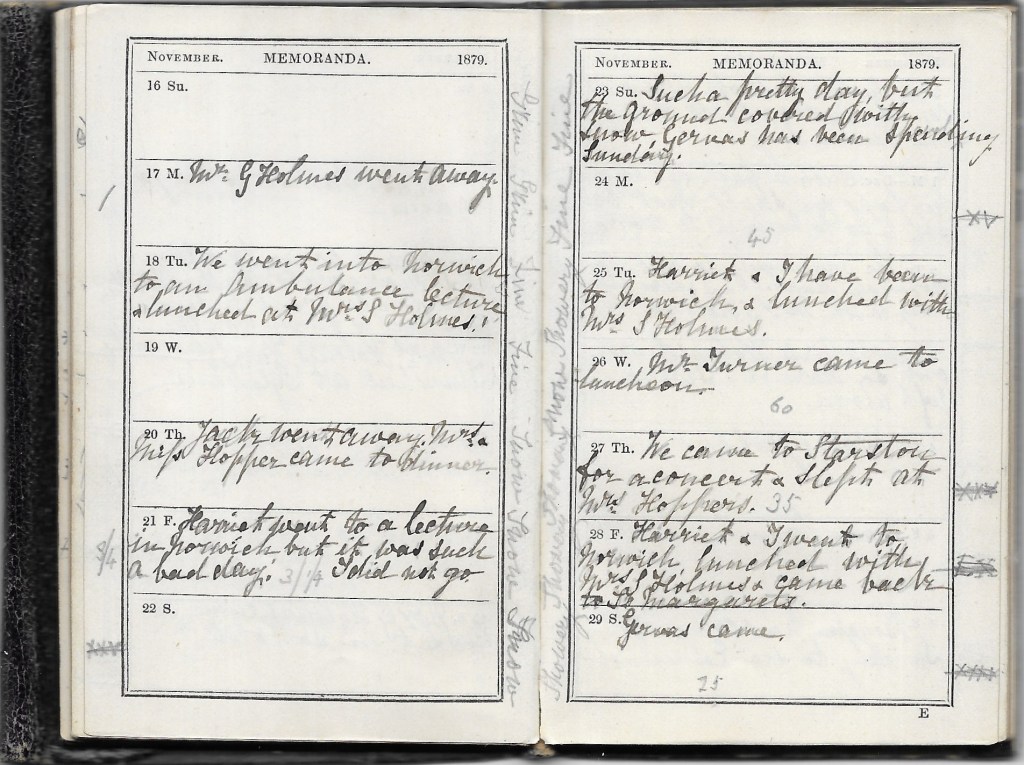 November. MEMORANDA. 1879.
16 Su.
17 M. Mr. G Holmes went away.
18 Tu. We went into Norwich
to an Ambulance lecture
& lunched at Mrs S Holmes.
19 W.
20 Th. Jack went away. Mrs &
Miss Hopper came to dinner.
21 F. Harriet went to a lecture
in Norwich but it was such
a bad day. 3/1/4 I did not go
22 S.
Fine Fine Snow Snow
November. MEMORANDA. 1879.
23 Su. Such a pretty day, but
the ground covered with
snow Gervas has been spending
Sunday.
24 M.
45
25 Tu. Harriet & I have been
to Norwich, & lunched with
Mrs S Holmes.
26 W. Mr Turner came to
luncheon.
60
27 Th. We came to Starston
for a concert & slept at
Mrs Hoppers. 35
28 F. Harriet & I went to
Norwich, lunched with
Mrs S Holmes & came back
to St Margarets.
29 S. Gervas came.
75
E
Showery Showery Snow Snow Showery Fine Fine
XV
XXX
XXX
XXV